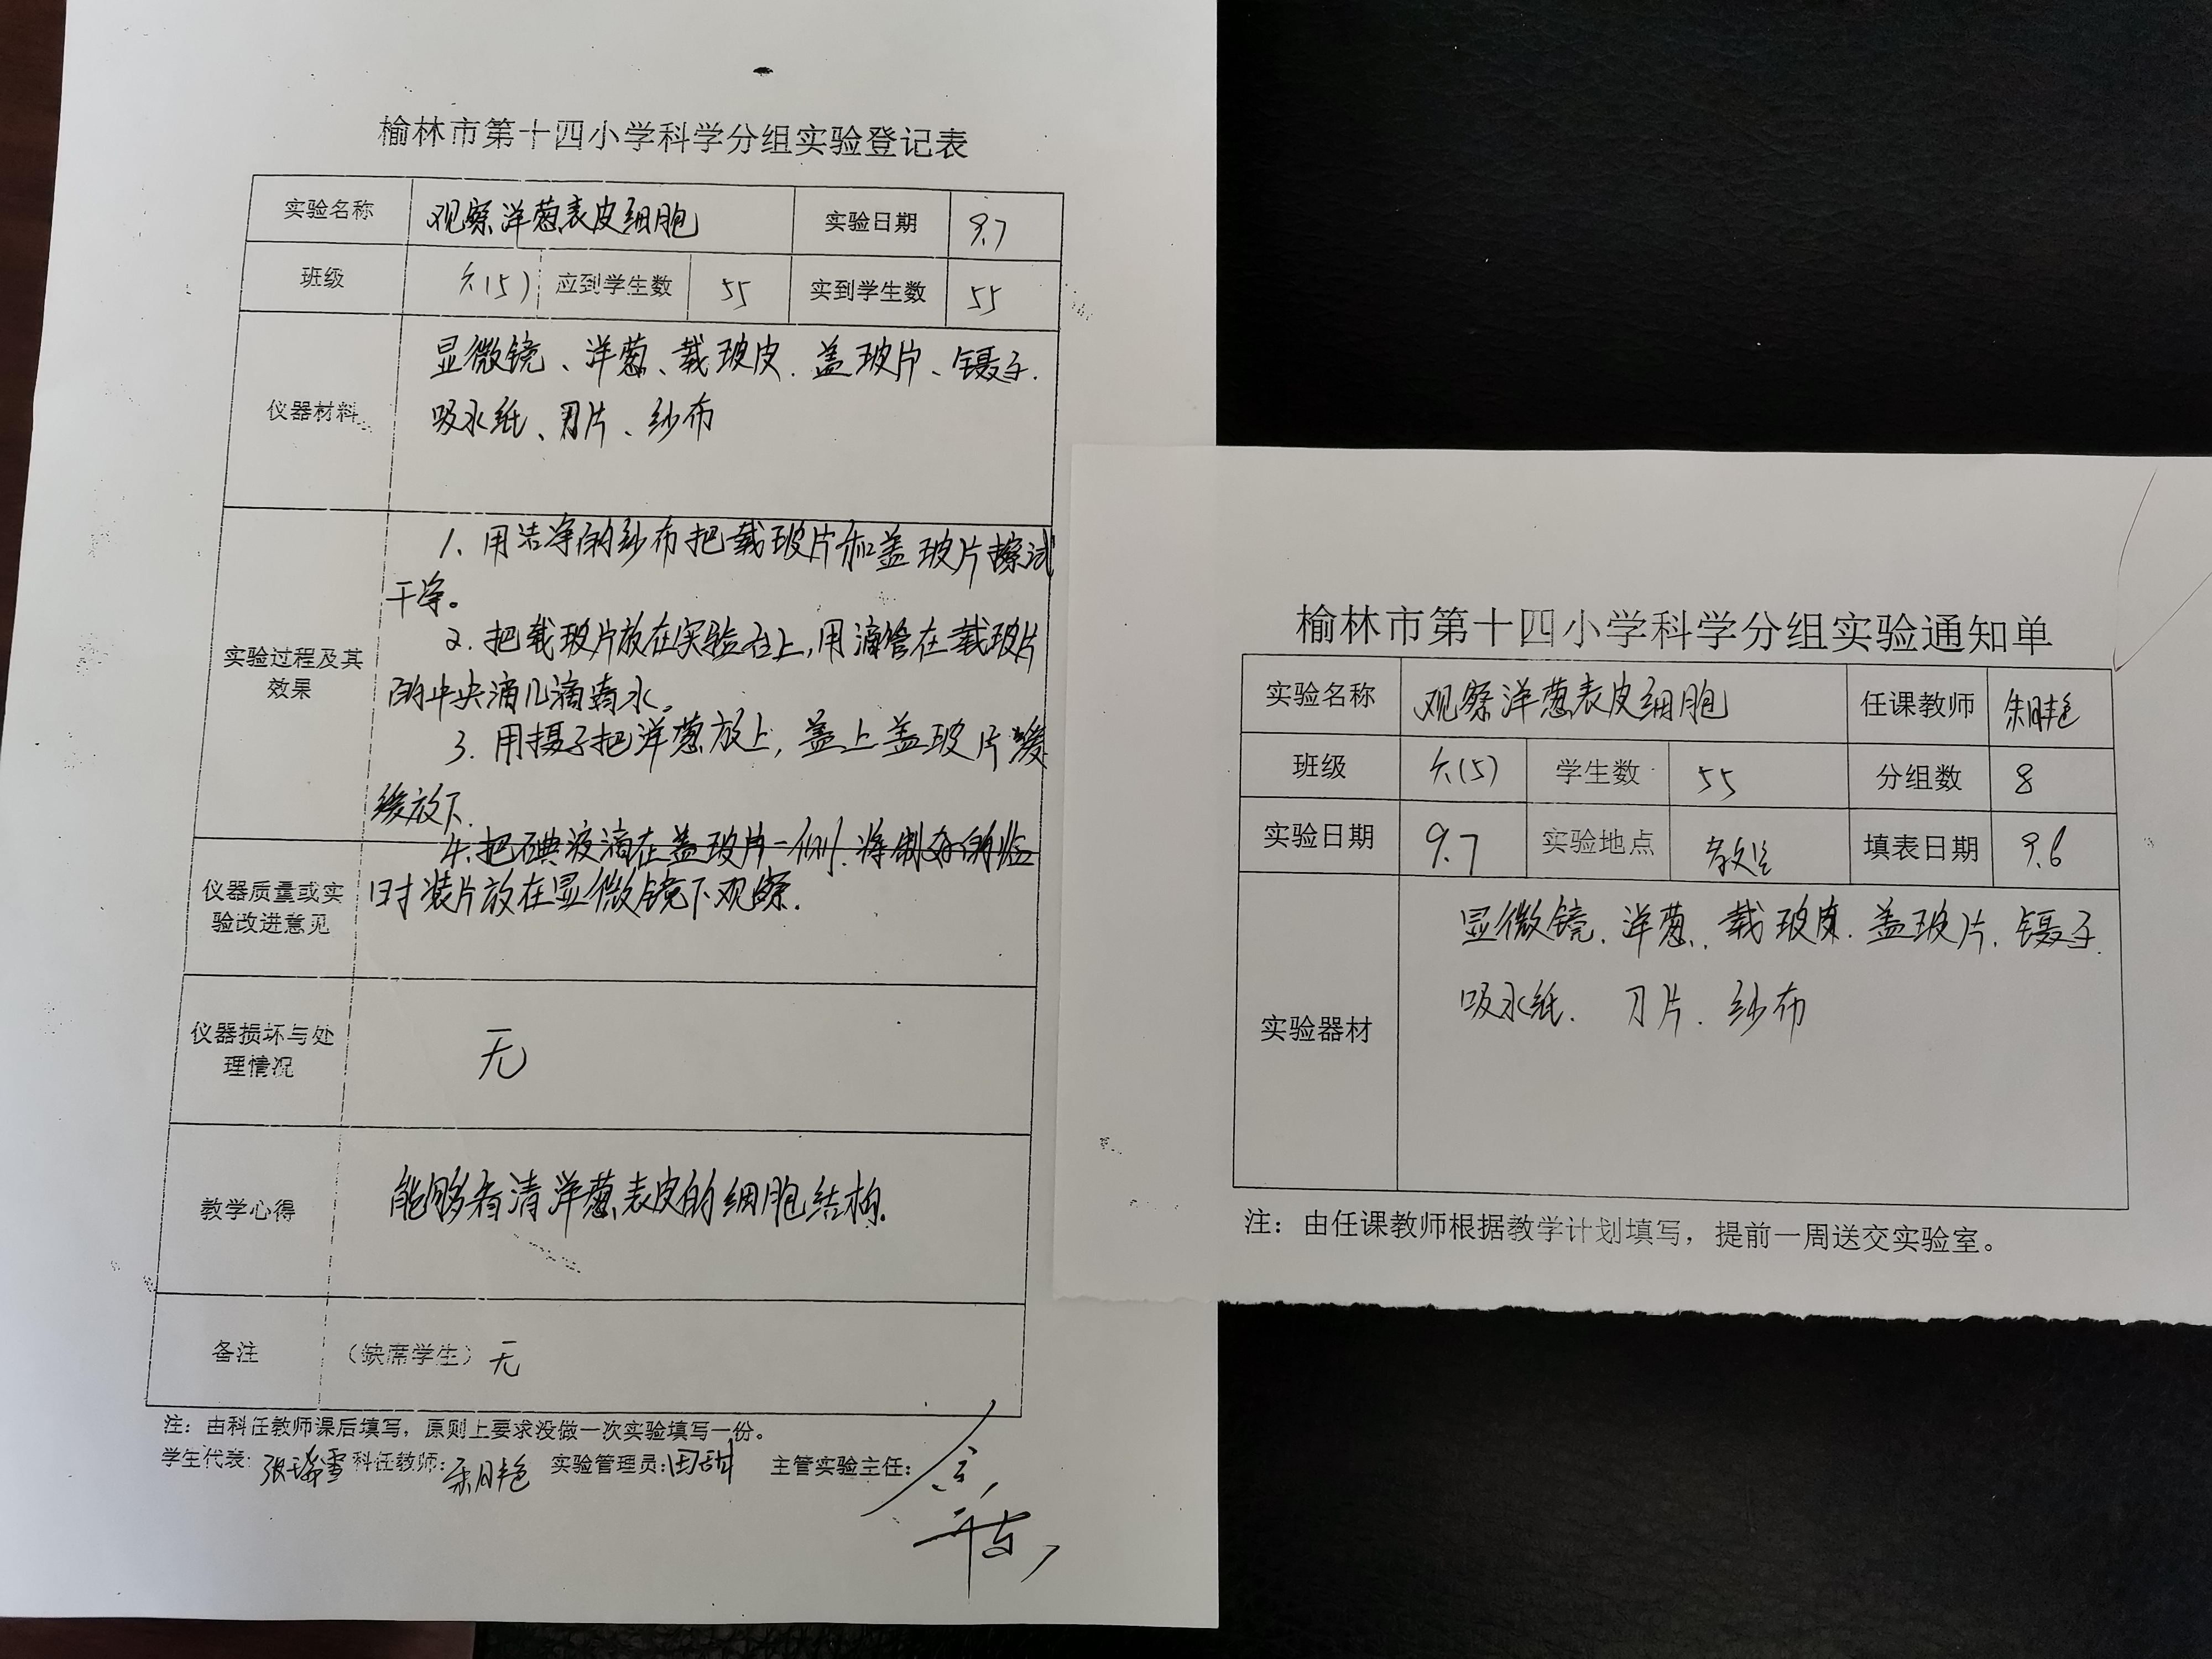 榆林市第十四小学科学分组实验登记表
实验名称 观察洋葱表皮细胞 实验日期 9.7
班级 六(5) 应到学生数 55 实到学生数 55
仪器材料
显微镜、洋葱、载玻皮.盖玻片、镊子.
吸水纸、刀片、纱布
实验过程及其
效果
1、用洁净的纱布把载玻片和盖玻片擦试
干净。
2.把载玻片放在实验台上,用滴管在载玻片
的中央滴几滴清水。
3.用摄子把洋葱放上,盖上盖玻片缓
缓放下.
4.把碘液滴在盖玻片一侧.将制好的临
时装片放在显微镜下观察.
仪器质量或实
验改进意见
仪器损坏与处
理情况
无
教学心得
能够看清洋葱表皮的细胞结构.
备注 (缺席学生) 无
注:由科任教师课后填写,原则上要求没做一次实验填写一份。
学生代表: 科任教师:朱月艳 实验管理员:田甜 主管实验主任:
榆林市第十四小学科学分组实验通知单
实验名称 观察洋葱表皮细胞 任课教师 朱月艳
班级 六(5) 学生数 55 分组数 8
实验日期 9.7 实验地点 教室 填表日期 9.6
实验器材
显微镜.洋葱.载玻皮.盖玻片.镊子.
吸水纸. 刀片.纱布
注:由任课教师根据教学计划填写,提前一周送交实验室。